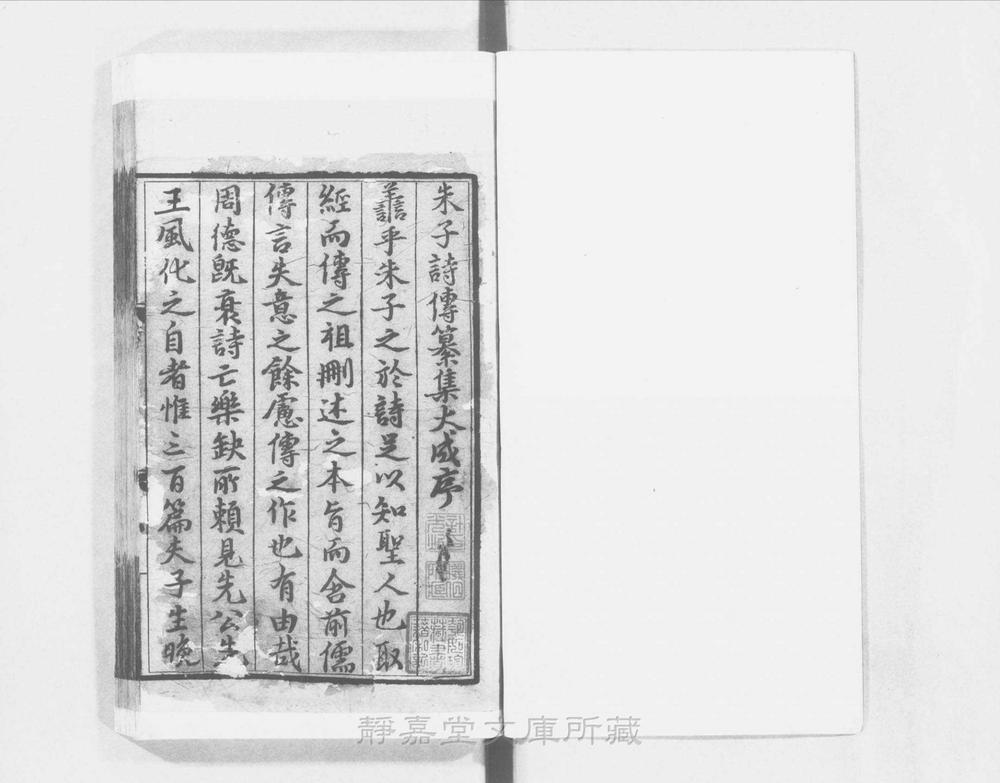 朱子詩傳纂集大成序
譱乎朱子之於詩足以知聖人也取
經而傳之祖刪述之本旨而舍前儒
傳言失意之餘慮傳之作也有由哉
周德旣衰詩亡樂缺所頼見先公先
王風化之自者惟三百篇夫子生晚
靜嘉堂文庫所藏